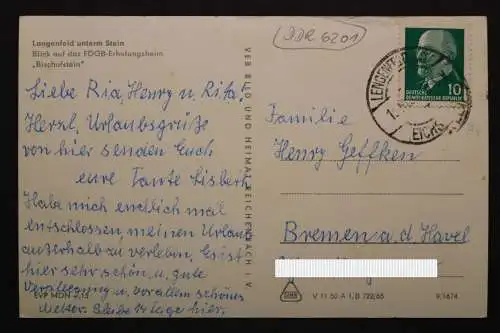 Lengenfeld unterm Stein
Blick auf das FDGB-Erholungsheim
„Bischofstein"
Liebe Ria, Henry u. Rita.
Herzl. Urlaubsgrüße
von hier senden Euch
eure Tante Lisbeth
Habe mich endlich mal
entschlossen, meinen Urlaub
außerhalb zu verleben. Es ist
hier sehr schön, u. gute
Verpflegung u. vor allem schönes
Wetter. hier.
EVP MDN 0,15
VEB BILD UND HEIMAT REICHENBACH I. V.
DDR 6201
10
DEUTSCHE
DEMOKRATISCHE REPUBLIK
LENGENFELD
EICHSF
Familie
Henry Geffken
Bremen a. d. Havel
V 11 50 A 1, B 722/65
R 1674